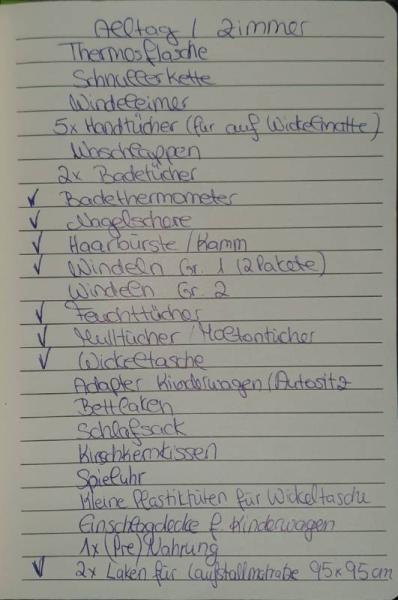 Alltag / Zimmer
Thermosflasche
Schnullerkette
Windeleimer
5x Handtücher (für auf Wickelmatte)
Waschlappen
2x Badetücher
✓ Badethermometer
✓ Nagelschere
✓ Haarbürste / Kamm
✓ Windeln Gr. 1 (2 Pakete)
Windeln Gr. 2
✓ Feuchttücher
✓ Mulltücher / Moltontücher
✓ Wickeltasche
Adapter Kinderwagen / Autositz
Bettlaken
Schlafsack
Kirschkernkissen
Spieluhr
Kleine Plastiktüten für Wickeltasche
Einschlagdecke f. Kinderwagen
1x (Pre) Nahrung
✓ 2x Laken für Laufstallmatratze 95x95cm